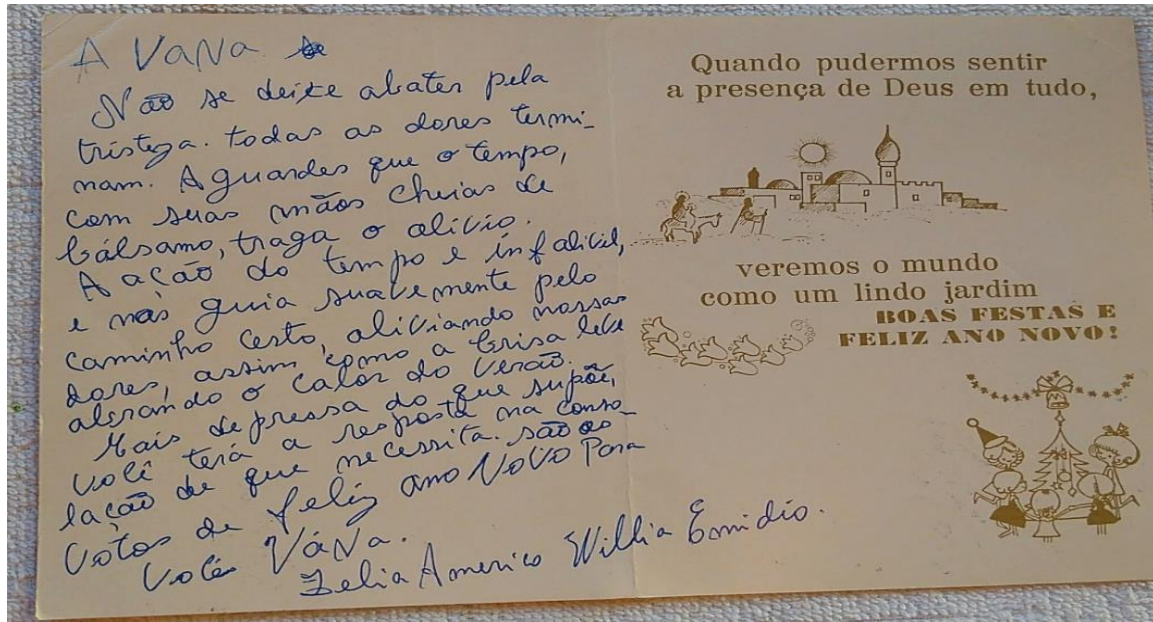 A VaNa
Não se deixe abater pela
tristeza. todas as dores termi_
nam. Aguardes que o tempo,
com suas mãos cheias de
bálsamo, traga o alívio.
A ação do tempo é infalível,
e nos guia suavemente pelo
caminho certo, aliviando nossas
dores, assim como a brisa leve
abranda o calor do verão.
Mais depressa do que supõe,
você terá a resposta na conso_
lação de que necessita. são os
Votos de feliz ano Novo Para
você VaNa.
Zelia Americo Willia Emidio.
Quando pudermos sentir
a presença de Deus em tudo,
veremos o mundo
como um lindo jardim
BOAS FESTAS E
FELIZ ANO NOVO!